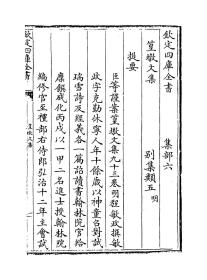 欽定四庫全書
集部六
篁墩文集
別集類五明
提要
臣等謹案篁墩文集九十三卷明程敏政撰敏
政字克勤休寧人年十餘歲以神童召對試
瑞雪詩及經義各一篇詔讀書翰林院官給
廩饌成化丙戌以一甲二名進士授翰林院
編修官至禮部右侍郎弘治十二年主會試
欽定四庫全書
篁墩文集